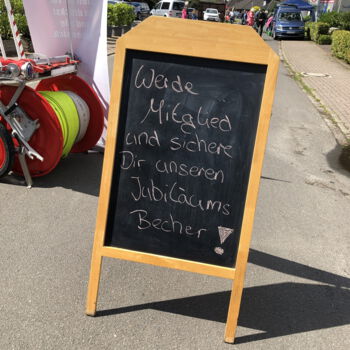 Werde
Mitglied
und sichere
Dir unseren
Jubiläums
Becher!